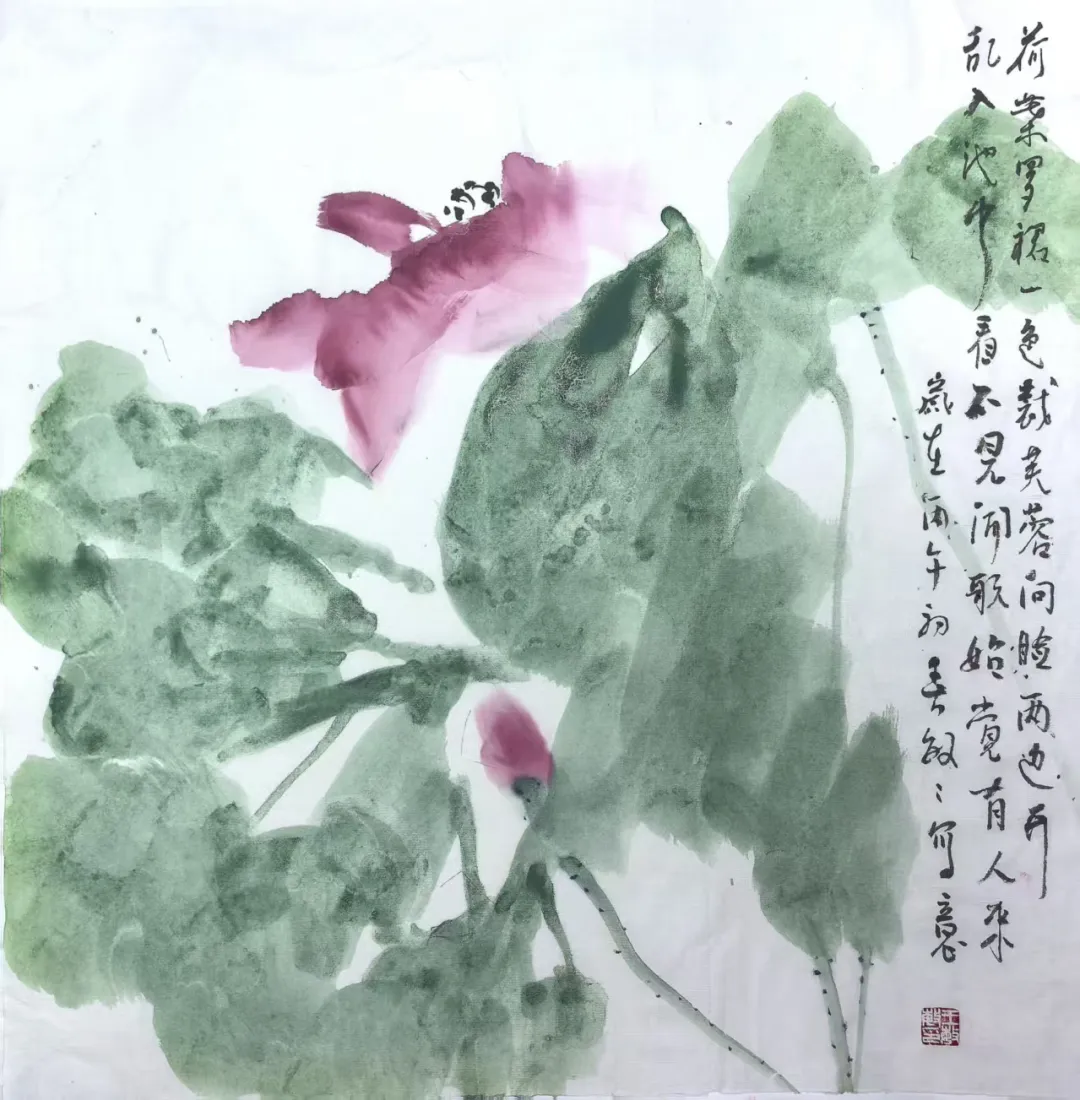 荷葉罗裙一色裁芙蓉向脸两边开
乱入池中看不见闻歌始觉有人来
岁在丙午初春敏敏写意